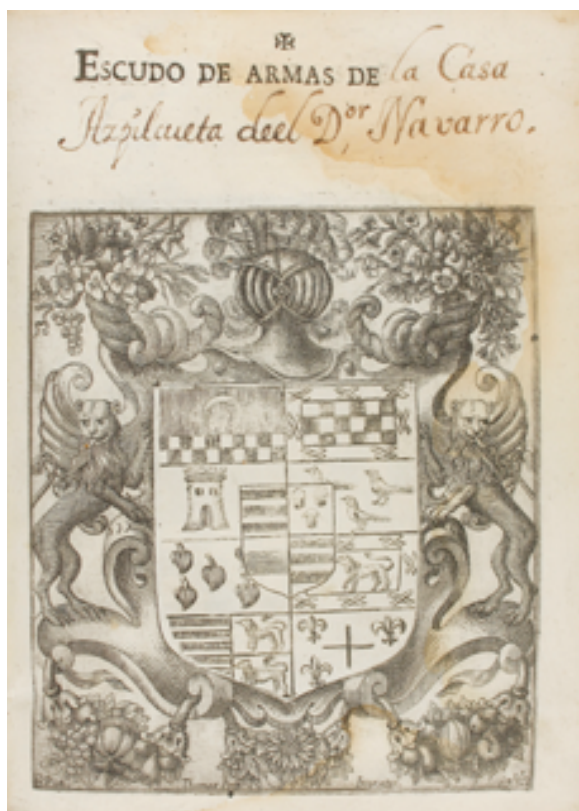 ✠
ESCUDO DE ARMAS DE la Casa
Azpilcueta deel D.or Navarro.